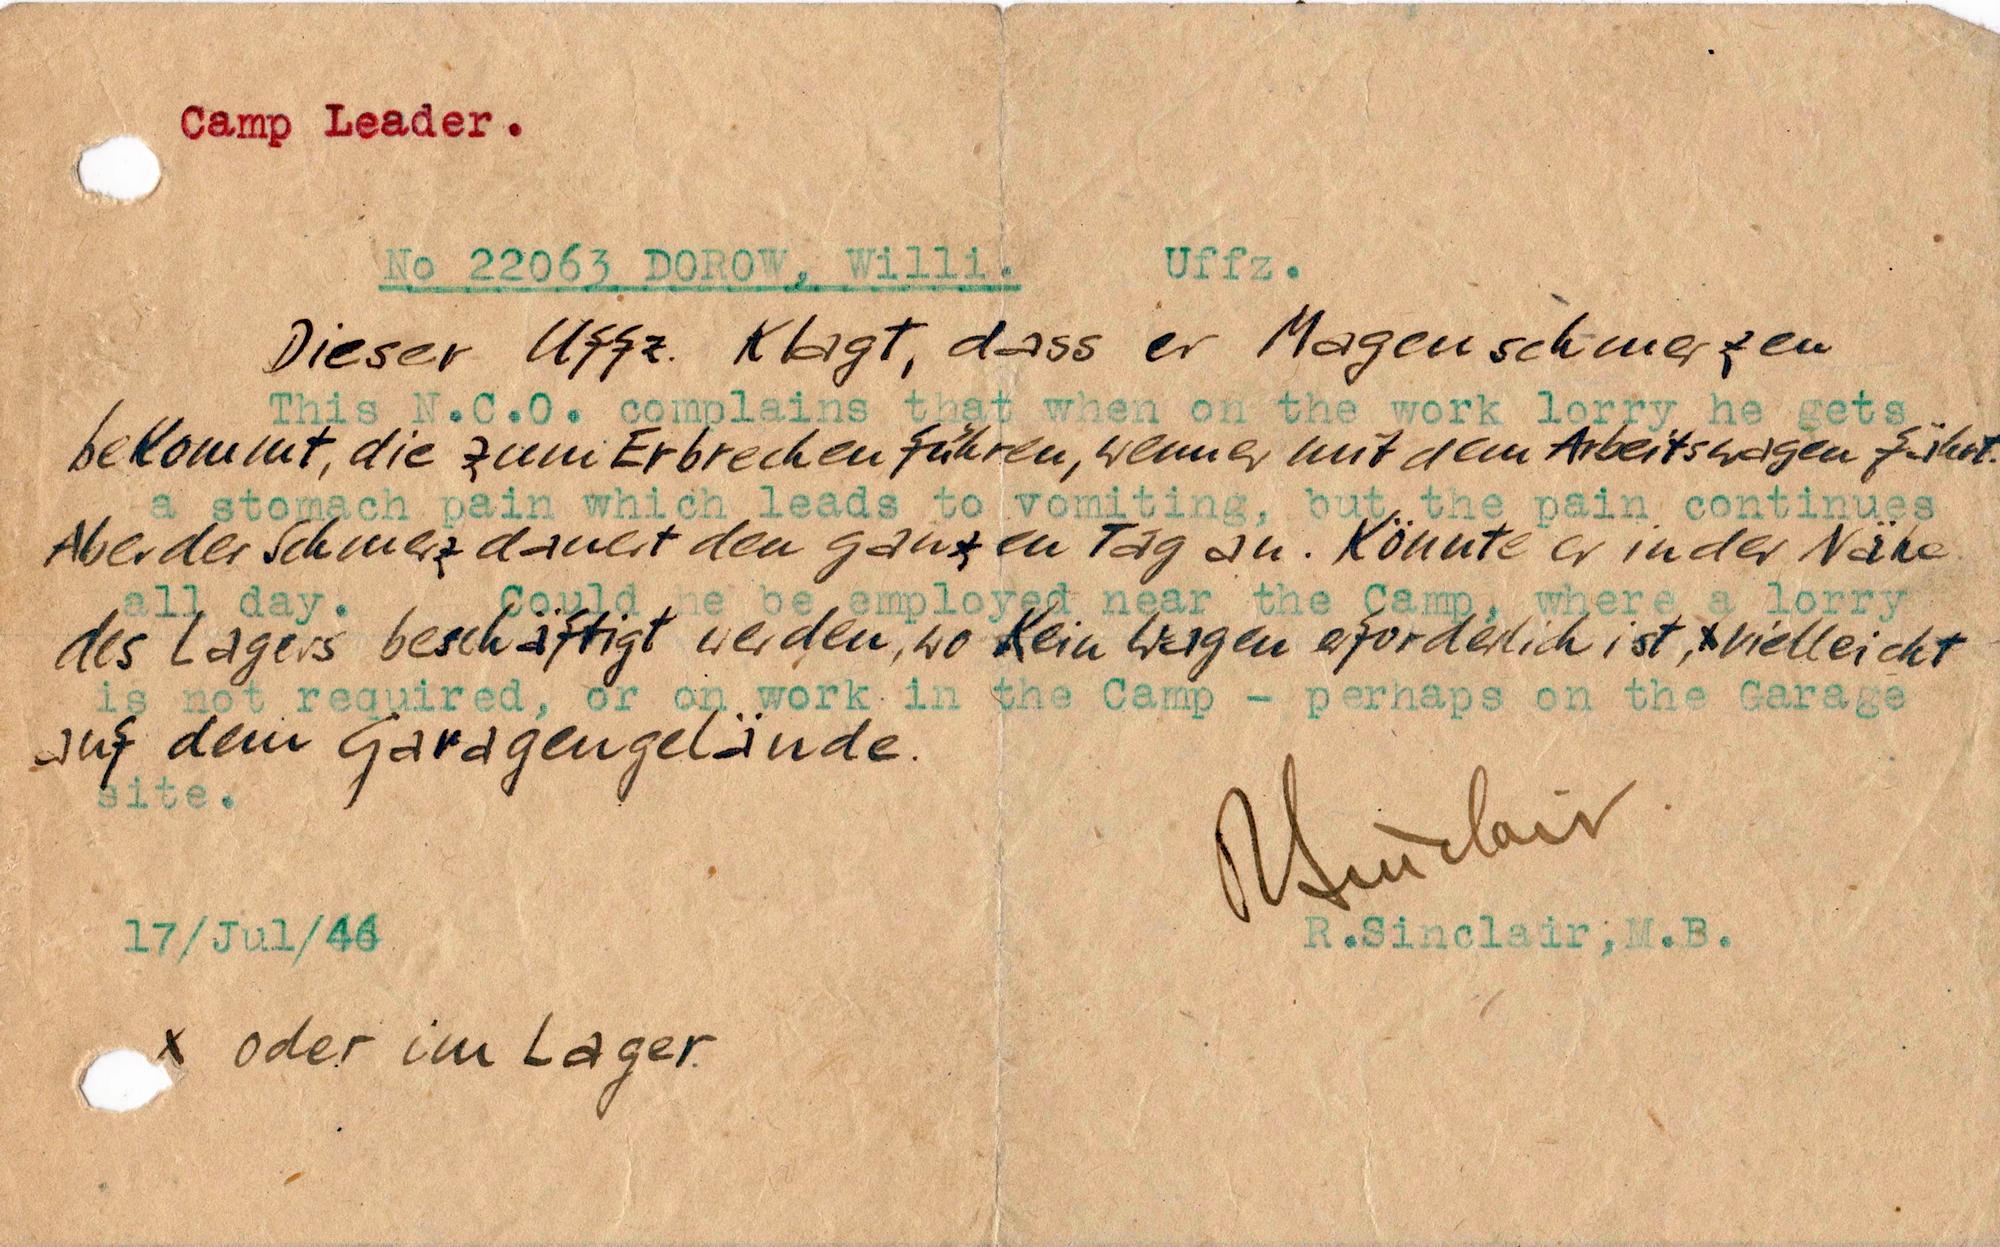 Camp Leader.
No 22063 DOROW, Willi. Uffz.
Dieser Uffz. klagt, dass er Magenschmerzen
This N.C.O. complains that when on the work lorry he gets
bekommt, die zum Erbrechen führen, wenn er mit dem Arbeitswagen fährt.
a stomach pain which leads to vomiting, but the pain continues
Aber der Schmerz dauert den ganzen Tag an. Könnte er in der Nähe
all day. Could he be employed near the Camp, where a lorry
des Lagers beschäftigt werden, wo kein Wagen erforderlich ist, x vielleicht
is not required, or on work in the Camp - perhaps on the Garage
auf dem Garagengelände.
site.
RSinclair
17/Jul/46
R.Sinclair,M.B.
x oder im Lager.